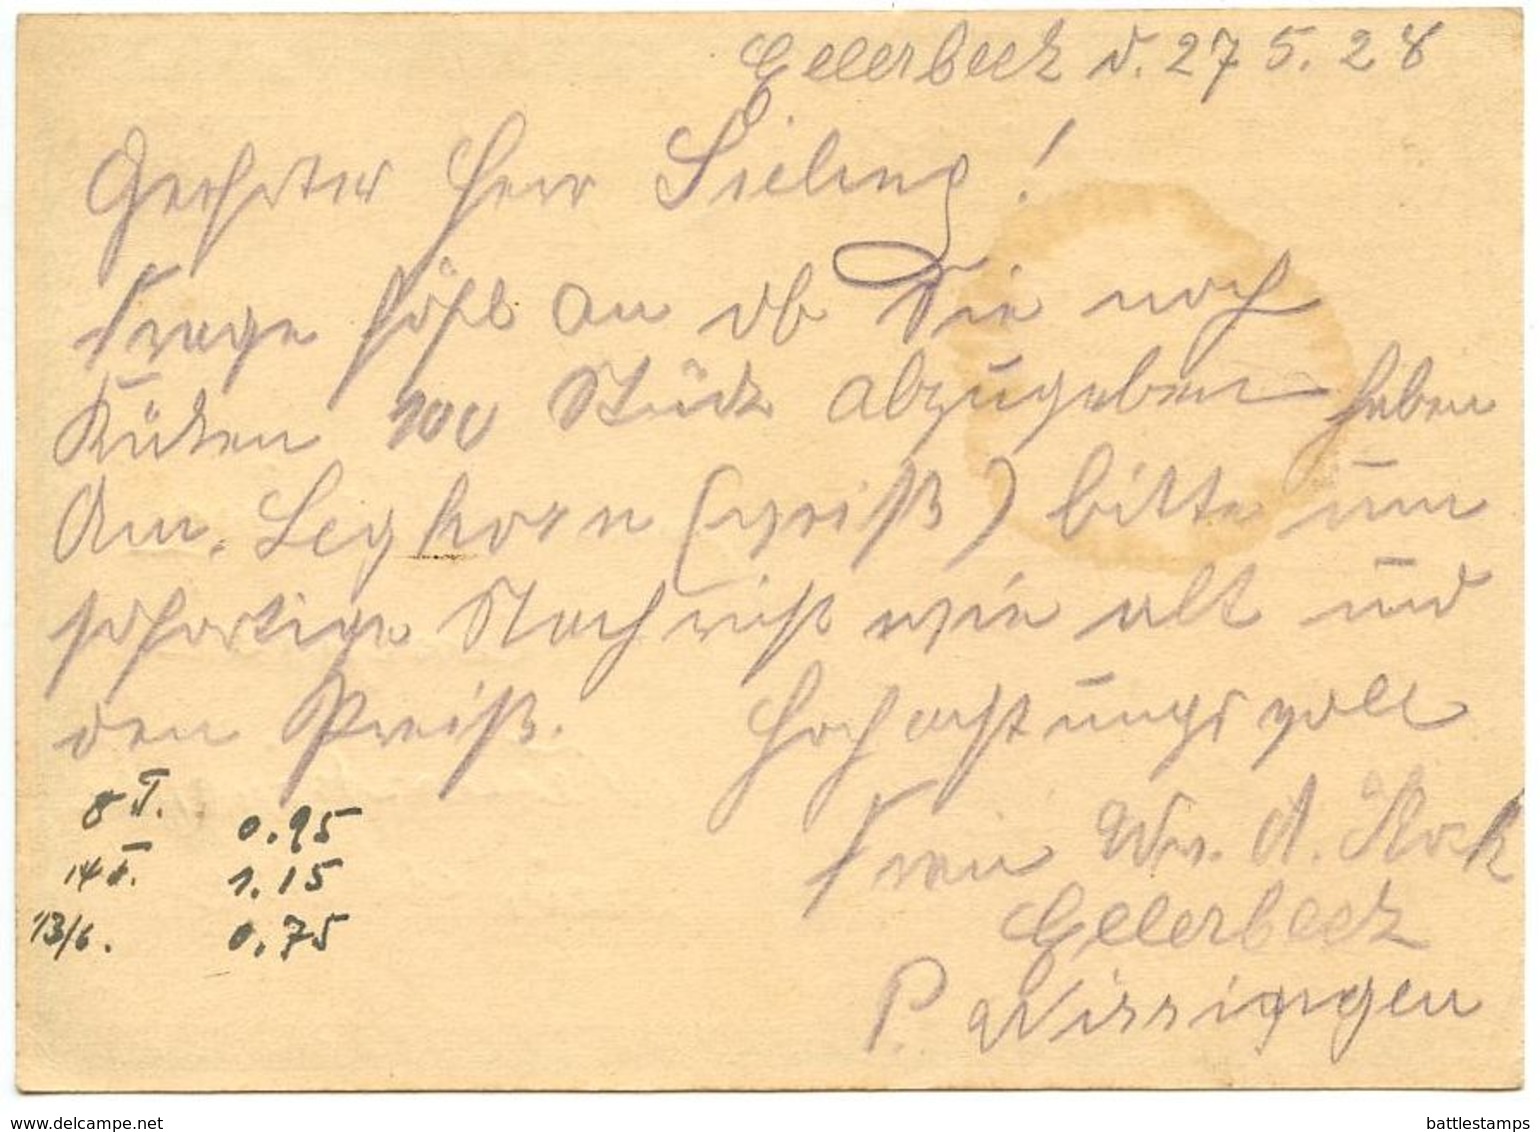 Ellerbeck d. 27 5. 28
Geehrter Herr Sieling!
Frage höfl an ob Sie noch
Küken 100 Stück abzugeben haben
Am. Leghorn (weiß) bitte um
sofortige Nachricht wie alt und
den Preiß. Hochachtungsvoll
Frau Ww. A. Stock
Ellerbeck
P. Wissingen
8 T. 0.95
14 T. 1.15
13/6. 0.75
www.delcampe.net
battlestamps